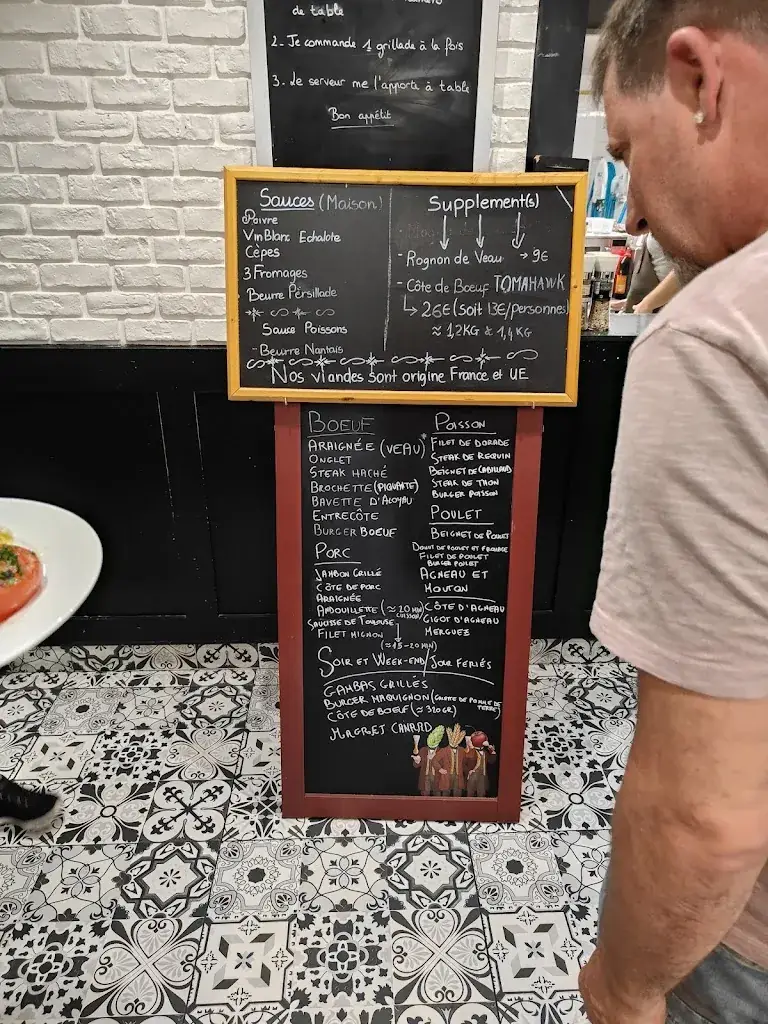 de table
2. Je commande 1 grillade à la fois
3. Le serveur me l'apporte à table
Bon appétit
Sauces (Maison)
Poivre
Vin Blanc Echalote
Cèpes
3 Fromages
Beurre Persillade
Sauce Poissons
- Beurre Nantais
Supplement(s)
- Rognon de Veau → 9€
- Côte de Boeuf TOMAHAWK
↳ 26€ (soit 13€/personnes)
≈ 1,2KG à 1,4KG
Nos viandes sont origine France et UE
BOEUF
ARAIGNÉE (VEAU)*
ONGLET
STEAK HACHÉ
BROCHETTE (PIQUANTE)
BAVETTE D'ALOYAU
ENTRECÔTE
BURGER BOEUF
PORC
JAMBON GRILLÉ
CÔTE DE PORC
ARAIGNÉE
ANDOUILLETTE (≈ 20 MIN CUISSON)
SAUCISSE DE TOULOUSE
FILET MIGNON
(≈ 15-20 MIN)
POISSON
FILET DE DORADE
STEAK DE REQUIN
BEIGNET DE CABILLAUD
STEAK DE THON
BURGER POISSON
POULET
BEIGNET DE POULET
DE POULET ET FROMAGE
FILET DE POULET
BURGER POULET
AGNEAU ET
MOUTON
CÔTE D'AGNEAU
GIGOT D'AGNEAU
MERGUEZ
SOIR ET WEEK-END/JOUR FERIÉS
GAMBAS GRILLÉS
BURGER MAQUIGNON (GALETTE DE POMME DE TERRE)
CÔTE DE BOEUF (≈ 320GR)
MAGRET CANARD